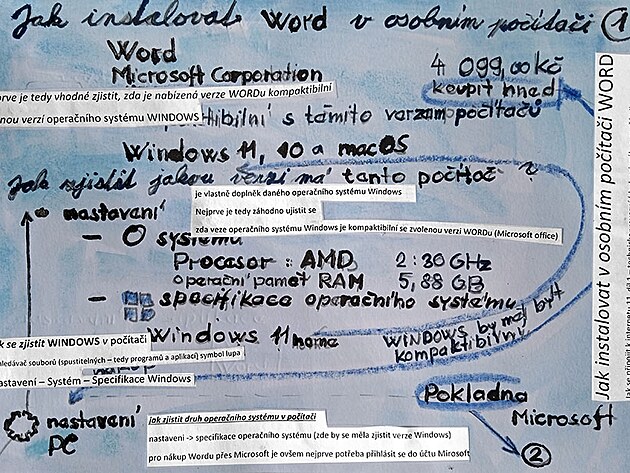 Jak instalovat Word v osobním počítači 1
Word
Microsoft Corporation
4 099,00 Kč
koupit hned
prve je tedy vhodné zjistit, zda je nabízená verze WORDu kompaktibilní
nou verzí operačního systému WINDOWS
s těmito verzemi počítačů
Windows 11, 10 a macOS
Jak zjistit jakou verzi má tento počítač
je vlastně doplněk daného operačního systému Windows
Nejprve je tedy záhodno ujistit se
zda veze operačního systému Windows je kompaktibilní se zvolenou verzí WORDu (Microsoft office)
nastavení
– O systému
Procesor : AMD 2:30 GHz
operační paměť RAM 5,88 GB
– specifikace operačního systému
Windows 11 home
WINDOWS by měl být
kompaktibilní
k se zjistit WINDOWS v počítači
hledávač souborů (spustitelných – tedy programů a aplikací) symbol lupa
astavení – Systém – Specifikace Windows
Pokladna
Microsoft
2
nastavení
PC
jak zjistit druh operačního systému v počítači
nastaveni -> specifikace operačního systému (zde by se měla zjistit verze Windows)
pro nákup Wordu přes Microsoft je ovšem nejprve potřeba přihlásit se do účtu Mirosoft
Jak instalovat v osobním počítači WORD